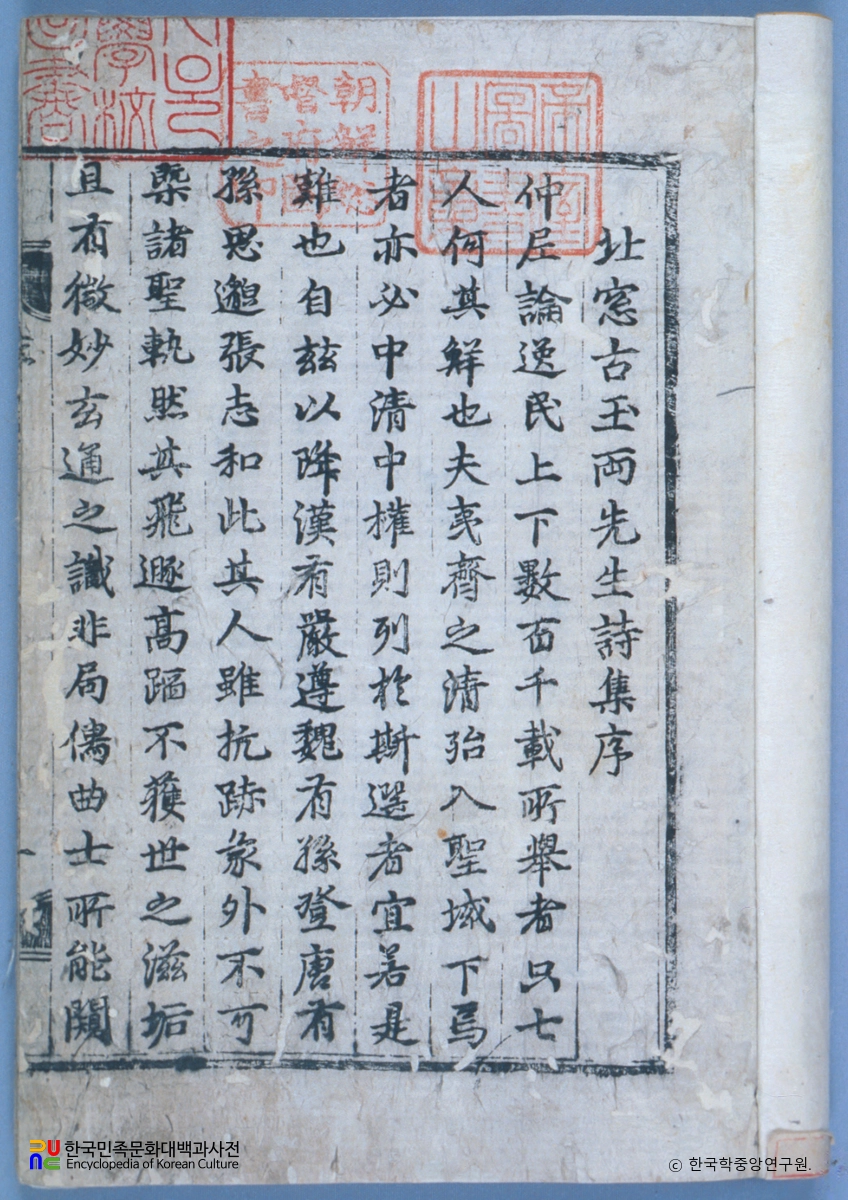 北窓古玉両先生詩集序
仲尼論逸民上下數百千載所舉者只七
人何其鮮也夫夷齊之清殆入聖域下焉
者亦必中清中權則列於斯選者宜若是
難也自玆以降漢有嚴遵魏有孫登唐有
孫思邈張志和此其人雖抗跡象外不可
槩諸聖軌然其飛遯高蹈不獲世之滋垢
且有微妙玄通之識非局儒曲士所能闚
朝鮮總
督府圖
書之印
帝室
圖書
之章
한국민족문화대백과사전
Encyclopedia of Korean Culture
© 한국학중앙연구원.